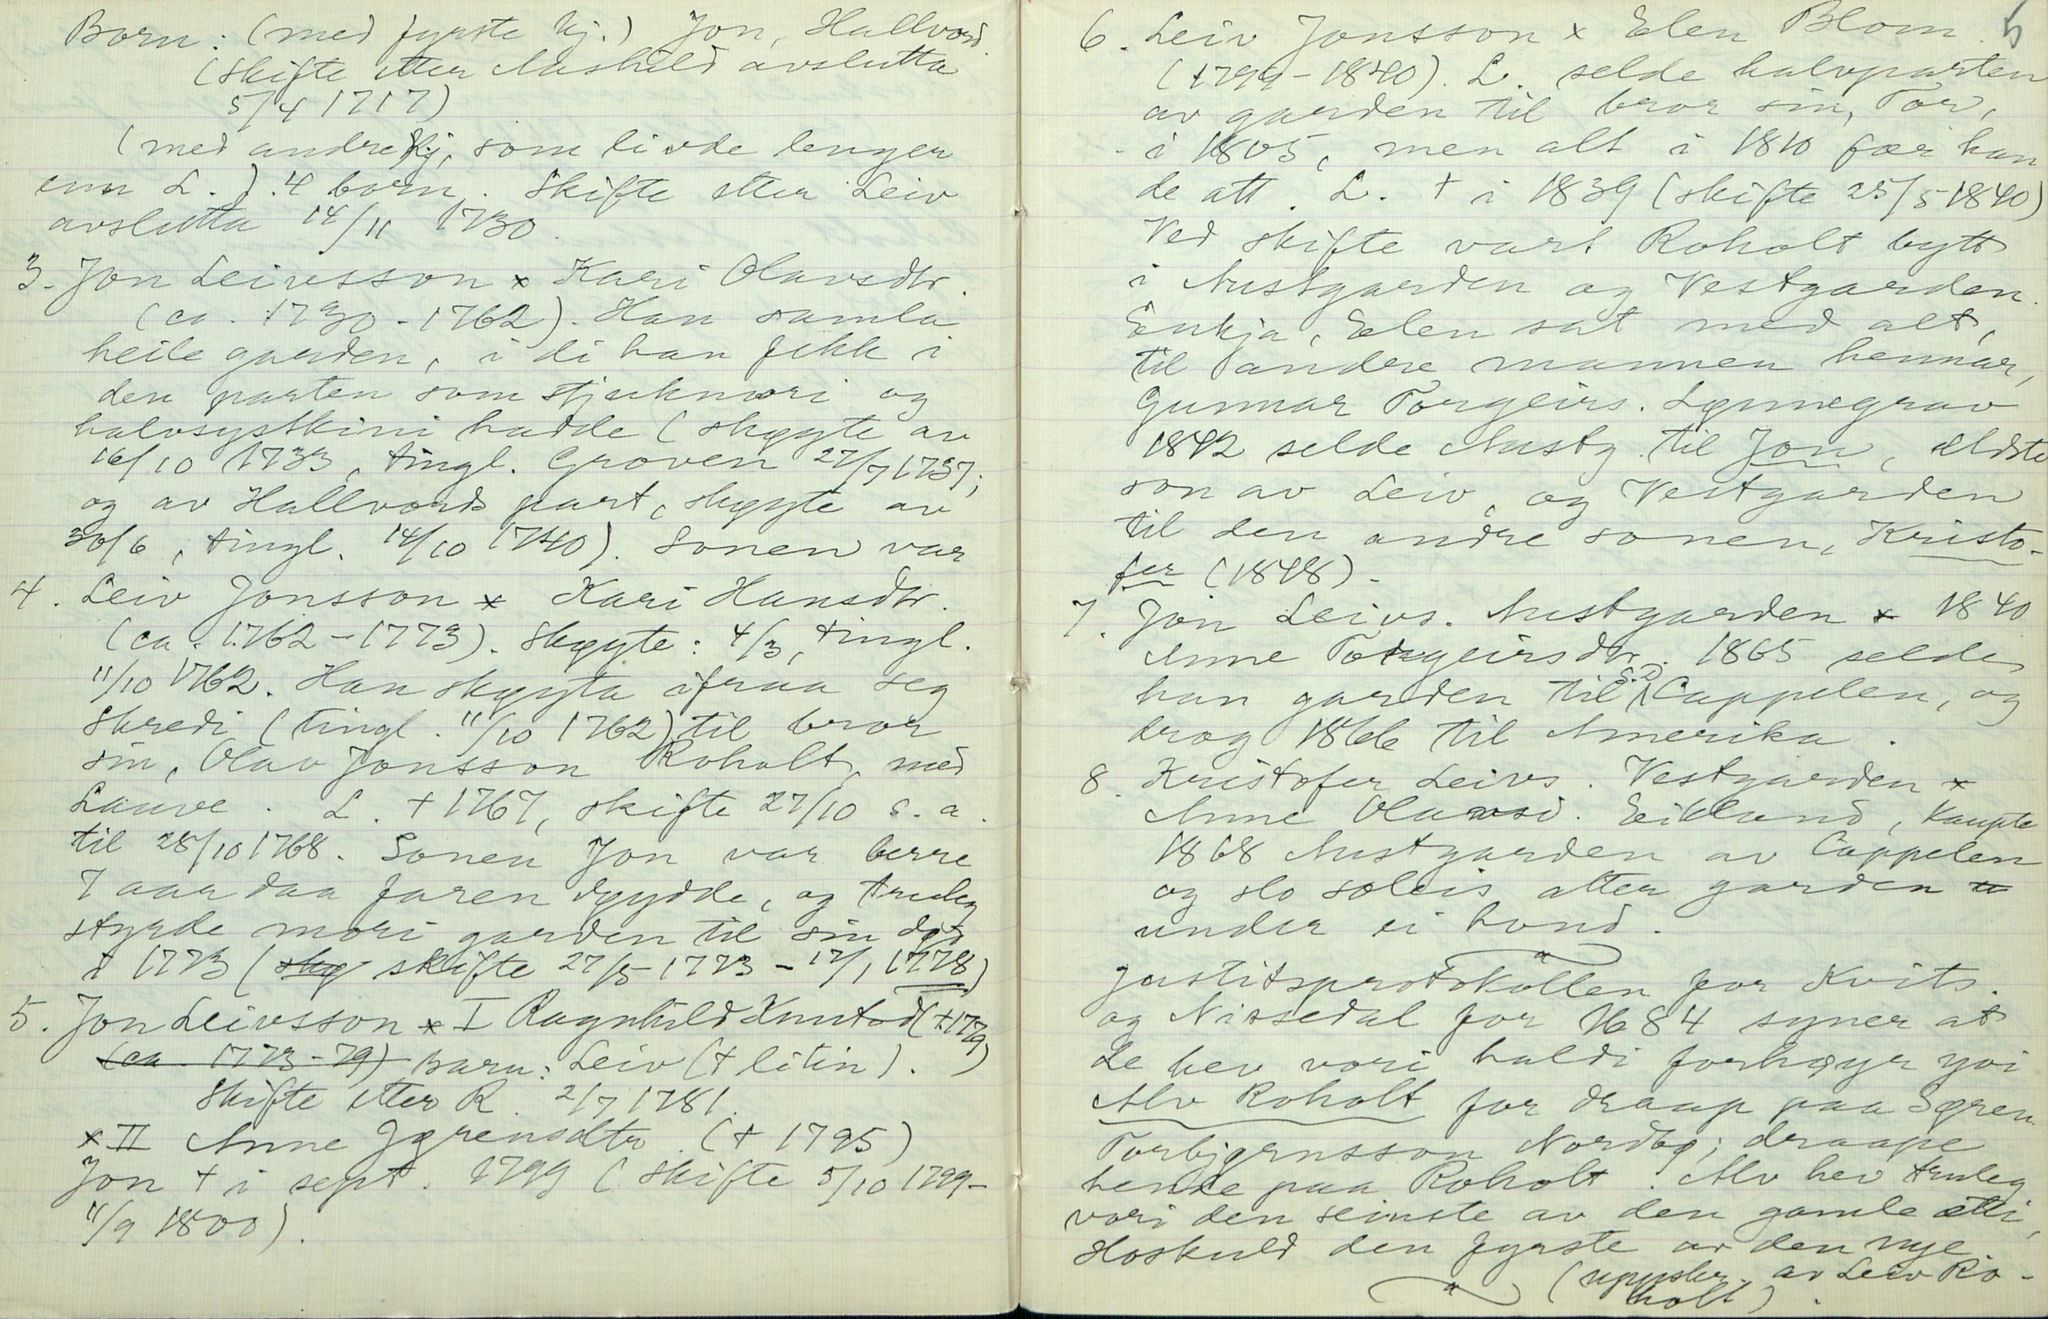 Born: (med fyrste kj.) Jon, Hallvord
(skifte etter Aashild avslutta
5/4 1717)
(med andre kj, som livde lenger
enn L.). 4 born. Skifte etter Leiv
avslutta 14/11 1730.
3. Jon Leivsson x Kari Olavsdtr.
(ca. 1730-1762). Han samla
heile garden, i di han fekk i
den parten som stjukmori og
halvsyskini hadde (skøyte av
16/10 1733, tingl. Groven 27/7 1737;
og av Hallvords part, skøyte av
30/6, tingl. 14/10 1740). Sonen var
4. Leiv Jonsson x Kari Hansdtr.
(ca. 1762-1773). Skøyte: 4/3, tingl.
11/10 1762. Han skøyta ifraa seg
Skredi (tingl. 11/10 1762) til bror
sin, Olav Jonsson Roholt, med
Lauve. L. † 1767, skifte 27/10 s. a.
til 28/10 1768. Sonen Jon var berre
7 aar daa faren døydde, og truleg
styrde mori garden til sin død
i 1773 (skø skifte 27/5 1773 - 17/1 1778)
5. Jon Leivsson x I Ragnhild Knutsd († 1779)
(ca. 1773-79) Barn: Leiv († litin).
Skifte etter R. 2/7 1781.
x II Anne Jørensdtr. († 1795)
Jon † i sept. 1799 (skifte 5/10 1799-
11/9 1800).
5
6. Leiv Jonsson x Elen Blom
(1799-1840). L. selde halvparten
av garden til bror sin, Tor,
i 1805, men alt i 1810 fær han
de att. L. † i 1839 (skifte 25/5 1840)
Ved skifte vart Roholt bytt
i Austgarden og Vestgarden.
Enkja, Elen sat med alt,
til andre mannen hennar,
Gunnar Torgeirs. Lønnegrav
1842 selde Austg. til Jon, eldste
son av Leiv, og Vestgarden
til den andre sonen, Kristo-
fer (1848).
7. Jon Leivs. Austgarden x 1840
Anne Torgeirsdtr. 1865 selde
han garden til S.D. Cappelen, og
drog 1866 til Amerika.
8. Kristofer Leivs. Vestgarden x
Anne Olavsd. Eiklund, kaupte
1868 Austgarden av Cappelen
og slo soleis atter garden u
under ei hond.
Justitsprotokollen for Kvits.
og Nissedal for 1684 syner at
de hev vori haldi forhøyr yvi
Alv Roholt for draap paa Søren
Torbjørnsson Nordbø; draape
hende paa Roholt. Alv hev truleg
vori den seinste av den gamle ætti,
Hoskuld den fyrste av den nye.
(uppskr. av Leiv Ro-
holt).